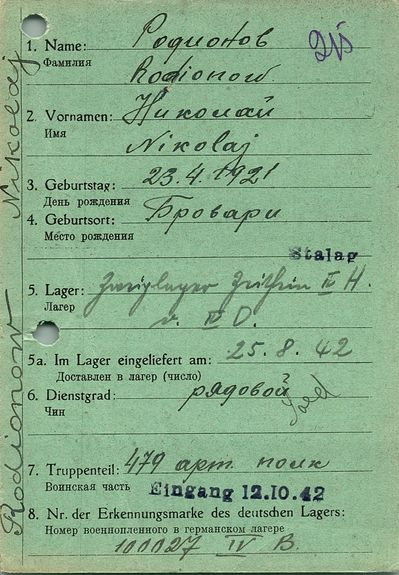 1. Name: Родионов
Фамилия
Rodionow
2. Vornamen: Николай
Имя
Nikolaj
3. Geburtstag: 23.4.1921
День рождения
4. Geburtsort: Бровари
Место рождения
Stalag
5. Lager: Zweiglager Zeithain IV H.
Лагер
v. IV D.
5a. Im Lager eingeliefert am: 25.8.42
Доставлен в лагер (число)
6. Dienstgrad: рядовой
Чин
Sold
7. Truppenteil: 479 арт. полк
Воинская часть
Eingang 12.10.42
8. Nr. der Erkennungsmarke des deutschen Lagers:
Номер военнопленного в германском лагере
100027 IV B.
Rodionow – Nikolaj